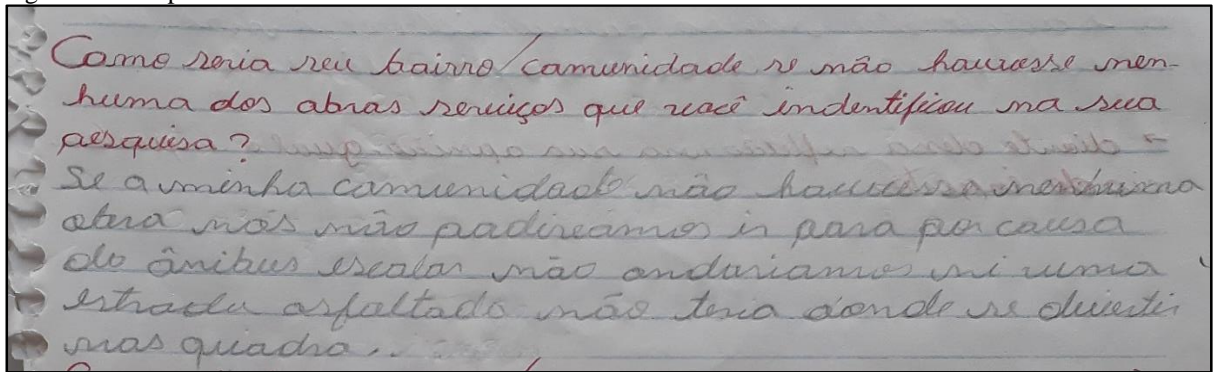 Como seria seu bairro/comunidade se não houvesse nen-
huma dos obras serviços que você indentificou na sua
pesquisa?
Se a minha comunidade não houvesse nenhuma
obra nós não padireamos ir para por causa
do ônibus escolar não anduriamos ni numa
estrada asfaltado não teria donde se divertir
nas quadra..